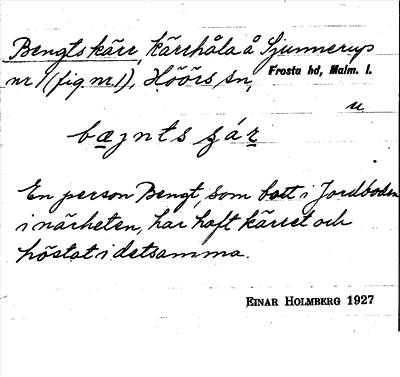 Bengtskärr, kärrhåla å Sjunnerup
nr 1 (fig. nr 1), Höörs sn, Frosta hd, Malm. l.
u
bæŋnts ʂáʀ
En person Bengt, som bott i Jordboden
i närheten, har haft kärret och
höstat i detsamma.
EINAR HOLMBERG 1927